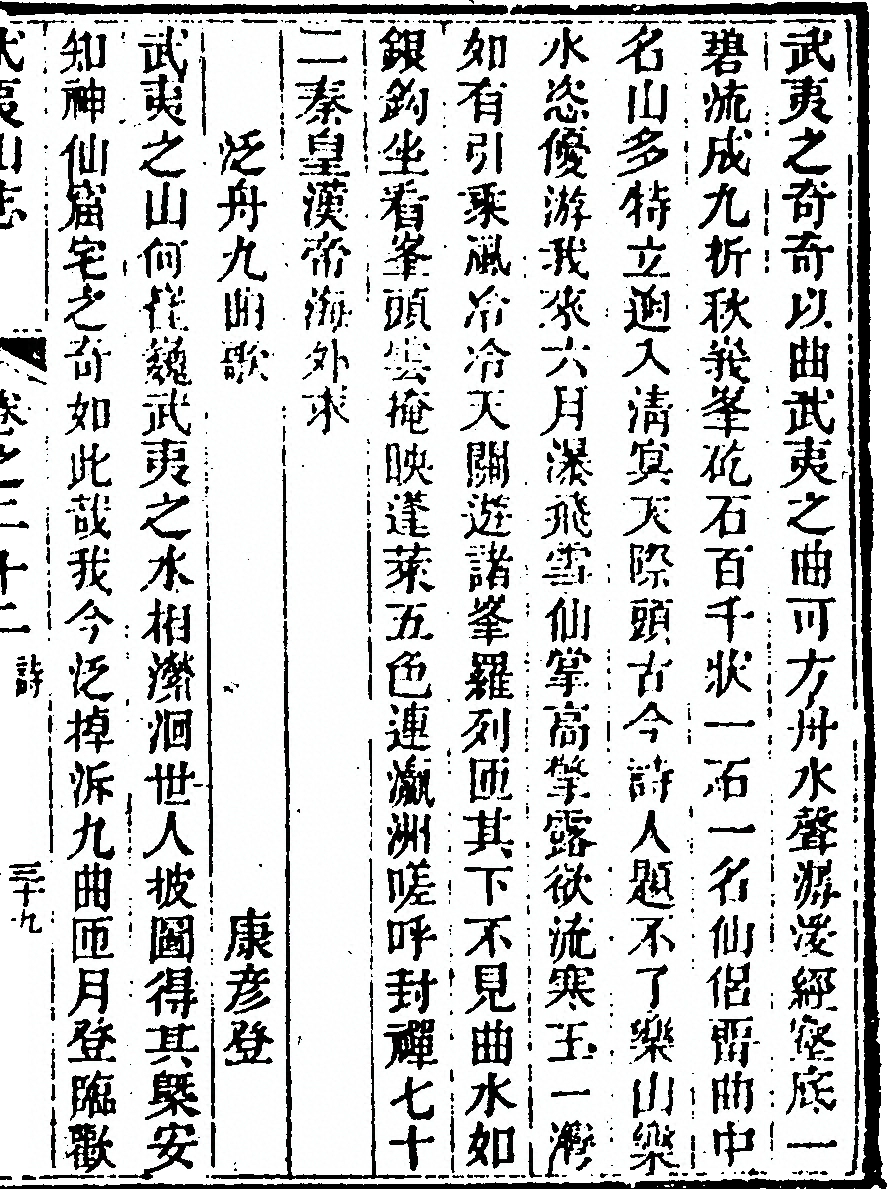 武夷之奇奇以曲武夷之曲可方舟水聲潺湲經壑底一
碧流成九折秋峩峯矻石百千狀一石一名仙侶留曲中
名山多特立迥入清冥天際頭古今詩人題不了樂山樂
水恣優游我來六月瀑飛雪仙掌高擎露欲流寒玉一灣
如有引乘風冷冷天關遊諸峯羅列匝其下不見曲水如
銀鈎坐看峯頭雲掩映蓬萊五色連瀛洲嗟呼封禪七十
二秦皇漢帝海外求
泛舟九曲歌
康彥登
武夷之山何崔巍武夷之水相瀠洄世人披圖得其槩安
知神仙窟宅之奇如此哉我今泛掉泝九曲匝月登臨歡
武夷山志
卷之二十二
詩
三十九